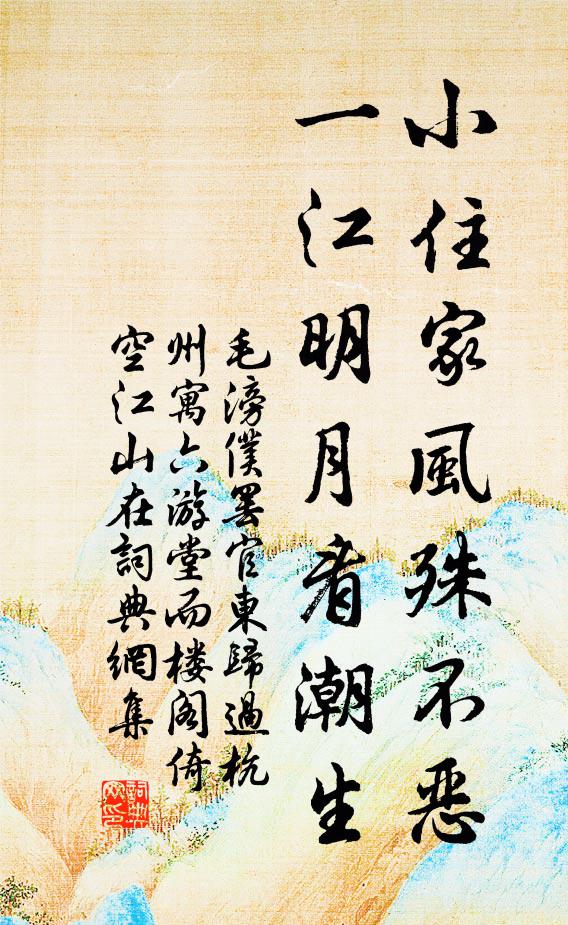 小住家風殊不恶
一江明月看潮生
毛滂僕罢官東歸過杭
州寓六游堂而楼阁倚
空江山在詞典網集
詞典网印